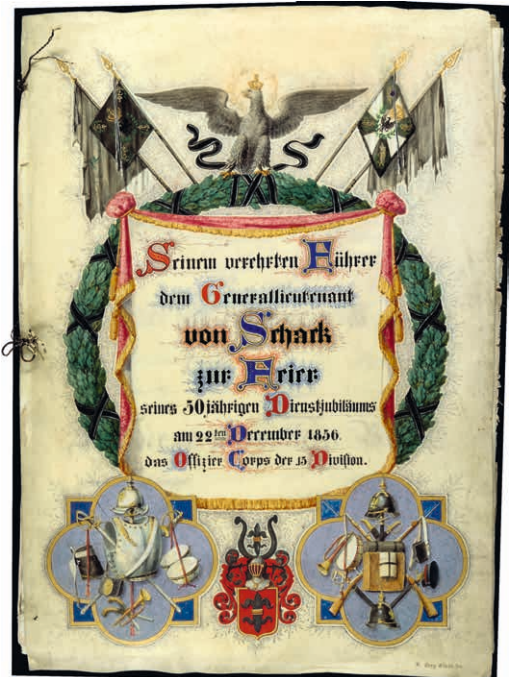 Seinem verehrten Führer
dem Generallieutenant
von Schack
zur Feier
seines 50jährigen Dienstjubiläums
am 22ten December 1856.
das Offizier Corps der 13 Division.